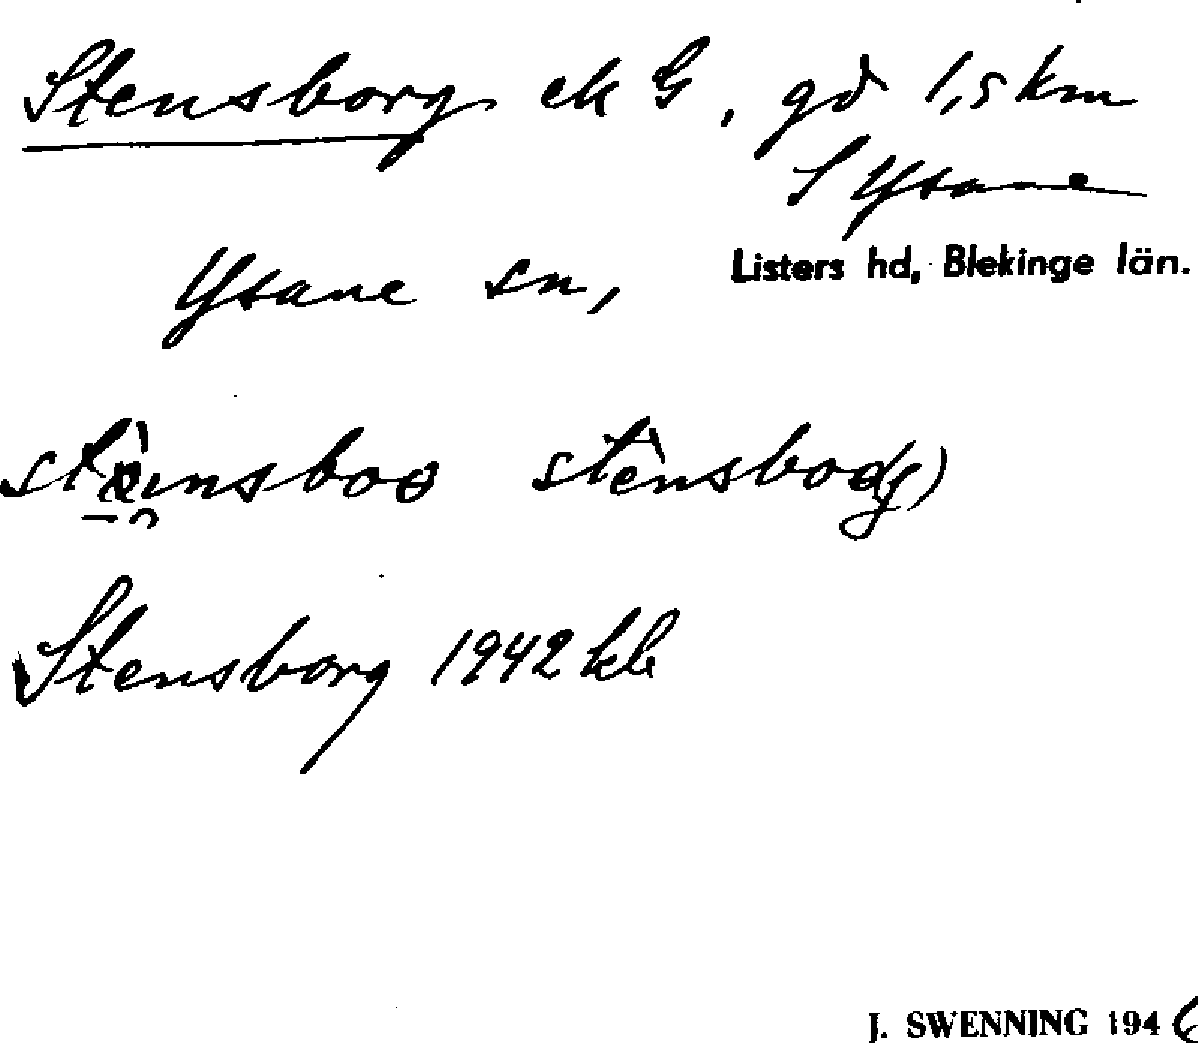 Stensborg ek G, gd 1,5 km
S Ysane
Ysane sn,
Listers hd, Blekinge län.
Stensborg 1942 kb
J. SWENNING 1946